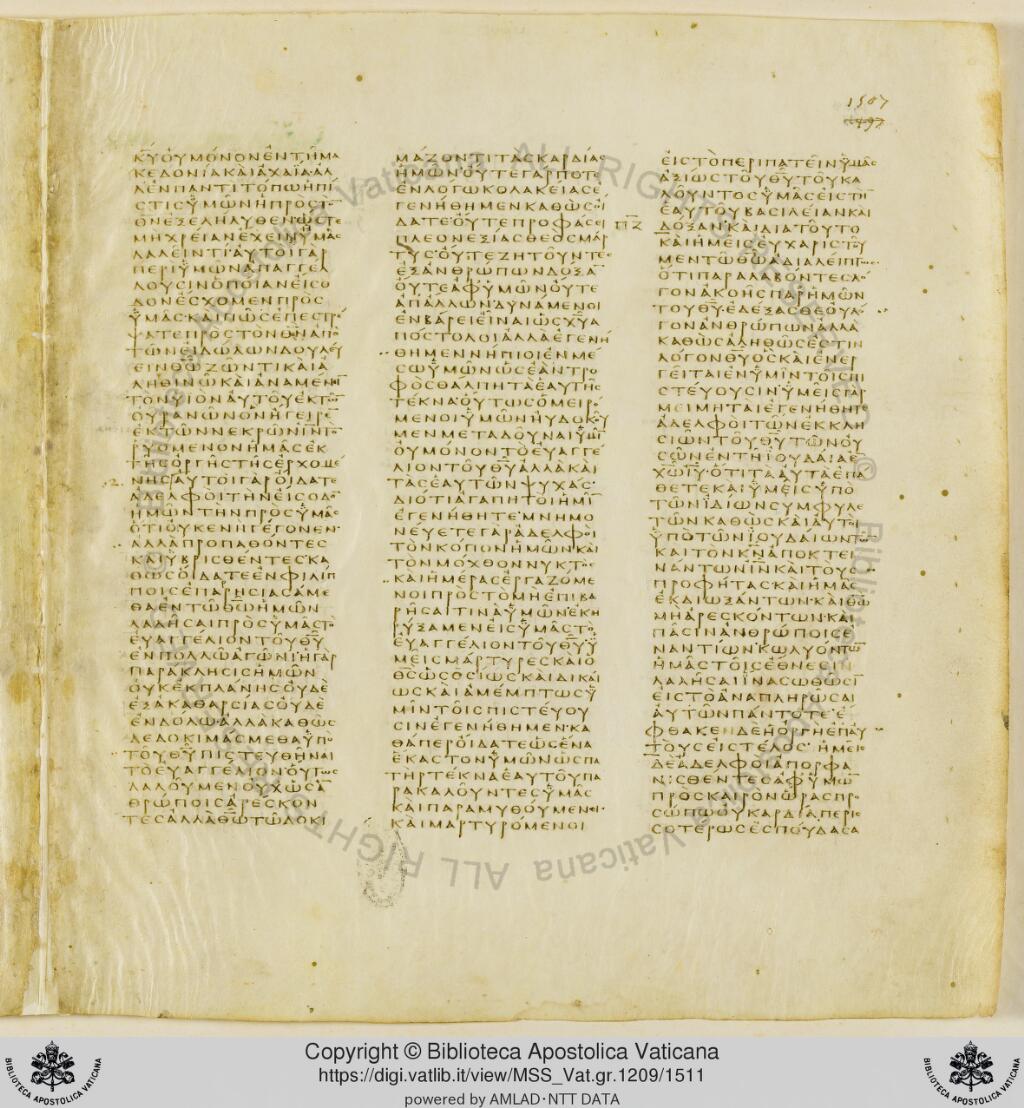 ΚΥΟΥΜΟΝΟΝΕΝΤΗΜΑ
ΚΕΔΟΝΙΑΚΑΙΑΧΑΙΑΑΛ
ΛΕΝΠΑΝΤΙΤΟΠΩΗΠΙ
ϹΤΙϹΥΜΩΝΗΠΡΟϹΤΟ̅
ΘΝΕΞΕΛΗΛΥΘΕΝΩϹΤΕ
ΜΗΧΡΕΙΑΝΕΧΕΙΝΥΜΑϹ
ΛΑΛΕΙΝΤΙΑΥΤΟΙΓΑΡ
ΠΕΡΙΥΜΩΝΑΠΑΓΓΕΛ
ΛΟΥϹΙΝΟΠΟΙΑΝΕΙϹΟ
ΔΟΝΕϹΧΟΜΕΝΠΡΟϹ
ΥΜΑϹΚΑΙΠΩϹΕΠΕϹΤΡΕ
ΨΑΤΕΠΡΟϹΤΟΝΘΝΑΠΟ
ΤΩΝΕΙΔΩΛΩΝΔΟΥΛΕΥ
ΕΙΝΘΩΖΩΝΤΙΚΑΙΑ
ΛΗΘΙΝΩΚΑΙΑΝΑΜΕΝΕΙ̅
ΤΟΝΥΙΟΝΑΥΤΟΥΕΚΤΩ̅
ΟΥΡΑΝΩΝΟΝΗΓΕΙΡΕ̅
ΕΚΤΩΝΝΕΚΡΩΝΙΝΤΟ̅
ΡΥΟΜΕΝΟΝΗΜΑϹΕΚ
ΤΗϹΟΡΓΗϹΤΗϹΕΡΧΟΜΕ
ΝΗϹΑΥΤΟΙΓΑΡΟΙΔΑΤΕ
ΑΔΕΛΦΟΙΤΗΝΕΙϹΟΔΟ̅
ΗΜΩΝΤΗΝΠΡΟϹΥΜΑϹ
ΟΤΙΟΥΚΕΝΗΓΕΓΟΝΕΝ
ΑΛΛΑΠΡΟΠΑΘΟΝΤΕϹ
ΚΑΙΥΒΡΙϹΘΕΝΤΕϹΚΑ
ΘΩϹΟΙΔΑΤΕΕΝΦΙΛΙΠ
ΠΟΙϹΕΠΑΡΗϹΙΑϹΑΜΕ
ΘΑΕΝΤΩΘΩΗΜΩΝ
ΛΑΛΗϹΑΙΠΡΟϹΥΜΑϹΤΟ
ΕΥΑΓΓΕΛΙΟΝΤΟΥΘΥ
ΕΝΠΟΛΛΩΑΓΩΝΙΗΓΑΡ
ΠΑΡΑΚΛΗϹΙϹΗΜΩΝ
ΟΥΚΕΚΠΛΑΝΗϹΟΥΔΕ
ΕΞΑΚΑΘΑΡϹΙΑϹΟΥΔΕ
ΕΝΔΟΛΩΑΛΛΑΚΑΘΩϹ
ΔΕΔΟΚΙΜΑϹΜΕΘΑΥΠΟ
ΤΟΥΘΥΠΙϹΤΕΥΘΗΝΑΙ
ΤΟΕΥΑΓΓΕΛΙΟΝΟΥΤΩϹ
ΛΑΛΟΥΜΕΝΟΥΧΩϹΑ̅
ΘΡΩΠΟΙϹΑΡΕϹΚΟΝ
ΤΕϹΑΛΛΑΘΩΤΩΔΟΚΙ
ΜΑΖΟΝΤΙΤΑϹΚΑΡΔΙΑϹ
ΗΜΩΝΟΥΤΕΓΑΡΠΟΤΕ
ΕΝΛΟΓΩΚΟΛΑΚΕΙΑϹΕ
ΓΕΝΗΘΗΜΕΝΚΑΘΩϹΟΙ
ΔΑΤΕΟΥΤΕΠΡΟΦΑϹΕΙ
ΠΛΕΟΝΕΞΙΑϹΘΕΟϹΜΑΡ
ΤΥϹΟΥΤΕΖΗΤΟΥΝΤΕϹ
ΕΞΑΝΘΡΩΠΩΝΔΟΞΑ̅
ΟΥΤΕΑΦΥΜΩΝΟΥΤΕ
ΑΠΑΛΛΩΝΔΥΝΑΜΕΝΟΙ
ΕΝΒΑΡΕΙΕΙΝΑΙΩϹΧΥΑ
ΠΟϹΤΟΛΟΙΑΛΛΑΕΓΕΝΗ
ΘΗΜΕΝΝΗΠΙΟΙΕΝΜΕ
ϹΩΥΜΩΝΩϹΕΑΝΤΡΟ
ΦΟϹΘΑΛΠΗΤΑΕΑΥΤΗϹ
ΤΕΚΝΑΟΥΤΩϹΟΜΕΙΡΟ
ΜΕΝΟΙΥΜΩΝΗΥΔΟΚΟΥ
ΜΕΝΜΕΤΑΔΟΥΝΑΙΥΜΙ̅
ΟΥΜΟΝΟΝΤΟΕΥΑΓΓΕ
ΛΙΟΝΤΟΥΘΥΑΛΛΑΚΑΙ
ΤΑϹΕΑΥΤΩΝΨΥΧΑϹ
ΔΙΟΤΙΑΓΑΠΗΤΟΙΗΜΙ̅
ΕΓΕΝΗΘΗΤΕΜΝΗΜΟ
ΝΕΥΕΤΕΓΑΡΑΔΕΛΦΟΙ
ΤΟΝΚΟΠΟΝΗΜΩΝΚΑΙ
ΤΟΝΜΟΧΘΟΝΝΥΚΤΟϹ
ΚΑΙΗΜΕΡΑϹΕΡΓΑΖΟΜΕ
ΝΟΙΠΡΟϹΤΟΜΗΕΠΙΒΑ
ΡΗϹΑΙΤΙΝΑΥΜΩΝΕΚΗ
ΡΥΞΑΜΕΝΕΙϹΥΜΑϹΤΟ
ΕΥΑΓΓΕΛΙΟΝΤΟΥΘΥΥ
ΜΕΙϹΜΑΡΤΥΡΕϹΚΑΙΟ
ΘϹΩϹΟϹΙΩϹΚΑΙΔΙΚΑΙ
ΩϹΚΑΙΑΜΕΜΠΤΩϹΥ
ΜΙΝΤΟΙϹΠΙϹΤΕΥΟΥ
ϹΙΝΕΓΕΝΗΘΗΜΕΝΚΑ
ΘΑΠΕΡΟΙΔΑΤΕΩϹΕΝΑ
ΕΚΑϹΤΟΝΥΜΩΝΩϹΠΑ
ΤΗΡΤΕΚΝΑΕΑΥΤΟΥΠΑ
ΡΑΚΑΛΟΥΝΤΕϹΥΜΑϹ
ΚΑΙΠΑΡΑΜΥΘΟΥΜΕΝΟΙ
ΚΑΙΜΑΡΤΥΡΟΜΕΝΟΙ
1507
ΕΙϹΤΟΠΕΡΙΠΑΤΕΙΝΥΜΑϹ
ΑΞΙΩϹΤΟΥΘΥΤΟΥΚΑ
ΛΟΥΝΤΟϹΥΜΑϹΕΙϹΤΗ̅
ΕΑΥΤΟΥΒΑϹΙΛΕΙΑΝΚΑΙ
ΔΟΞΑΝΚΑΙΔΙΑΤΟΥΤΟ
ΚΑΙΗΜΕΙϹΕΥΧΑΡΙϹΤΟΥ
ΜΕΝΤΩΘΩΑΔΙΑΛΕΙΠΤΩϹ
ΟΤΙΠΑΡΑΛΑΒΟΝΤΕϹΛΟ
ΓΟΝΑΚΟΗϹΠΑΡΗΜΩΝ
ΤΟΥΘΥΕΔΕΞΑϹΘΕΟΥΛΟ
ΓΟΝΑΝΘΡΩΠΩΝΑΛΛΑ
ΚΑΘΩϹΑΛΗΘΩϹΕϹΤΙΝ
ΛΟΓΟΝΘΥΟϹΚΑΙΕΝΕΡ
ΓΕΙΤΑΙΕΝΥΜΙΝΤΟΙϹΠΙ
ϹΤΕΥΟΥϹΙΝΥΜΕΙϹΓΑΡ
ΜΕΙΜΗΤΑΙΕΓΕΝΗΘΗΤΕ
ΑΔΕΛΦΟΙΤΩΝΕΚΚΛΗ
ϹΙΩΝΤΟΥΘΥΤΩΝΟΥ
ϹΩΝΕΝΤΗΙΟΥΔΑΙΑΕ̅
ΧΩΙΥΟΤΙΤΑΑΥΤΑΕΠΑ
ΘΕΤΕΚΑΙΥΜΕΙϹΥΠΟ
ΤΩΝΙΔΙΩΝϹΥΜΦΥΛΕ
ΤΩΝΚΑΘΩϹΚΑΙΑΥΤΟΙ
ΥΠΟΤΩΝΙΟΥΔΑΙΩΝΤΩ̅
ΚΑΙΤΟΝΚΝΑΠΟΚΤΕΙ
ΝΑΝΤΩΝΙΝΚΑΙΤΟΥϹ
ΠΡΟΦΗΤΑϹΚΑΙΗΜΑϹ
ΕΚΔΙΩΞΑΝΤΩΝΚΑΙΘΩ
ΜΗΑΡΕϹΚΟΝΤΩΝΚΑΙ
ΠΑϹΙΝΑΝΘΡΩΠΟΙϹΕ
ΝΑΝΤΙΩΝΚΩΛΥΟΝΤΩ̅
ΗΜΑϹΤΟΙϹΕΘΝΕϹΙ
ΛΑΛΗϹΑΙΙΝΑϹΩΘΩϹΙ̅
ΕΙϹΤΟΑΝΑΠΛΗΡΩϹΑΙ
ΑΥΤΩΝΠΑΝΤΟΤΕΕ
ΦΘΑΚΕΝΔΕΗΟΡΓΗΕΠΑΥ
ΤΟΥϹΕΙϹΤΕΛΟϹΗΜΕΙϹ
ΔΕΑΔΕΛΦΟΙΑΠΟΡΦΑ
ΝΙϹΘΕΝΤΕϹΑΦΥΜΩ̅
ΠΡΟϹΚΑΙΡΟΝΩΡΑϹΠΡΟ
ϹΩΠΩΟΥΚΑΡΔΙΑΠΕΡΙϹ
ϹΟΤΕΡΩϹΕϹΠΟΥΔΑϹΑ
Copyright © Biblioteca Apostolica Vaticana
https://digi.vatlib.it/view/MSS_Vat.gr.1209/1511
powered by AMLAD·NTT DATA